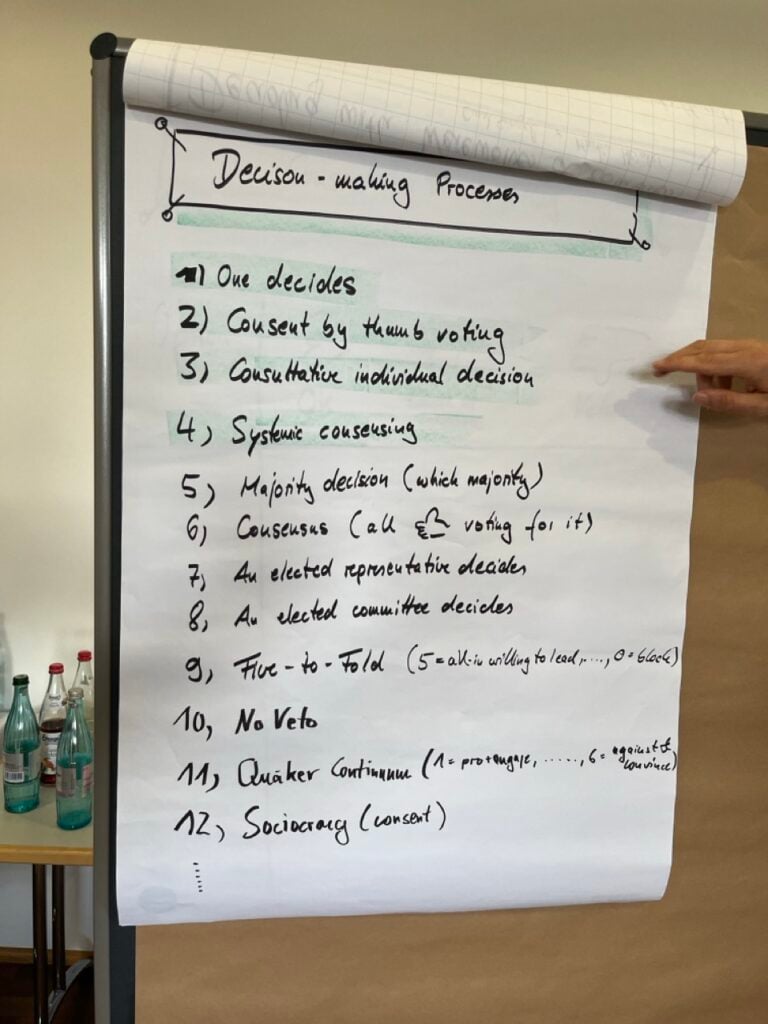 Decison-making Processes
1) One decides
2) Consent by thumb voting
3) Consultative individual decision
4) Systemic consensing
5) Majority decision (which majority)
6) Consensus (all 👍 voting for it)
7) An elected representative decides
8) An elected committee decides
9) Five-to-Fold (5 = all-in willing to lead, ...., 0 = block)
10) No Veto
11) Quäker Continuum (1 = pro + engage, ......, 6 = against & convince)
12) Sociocracy (consent)
......